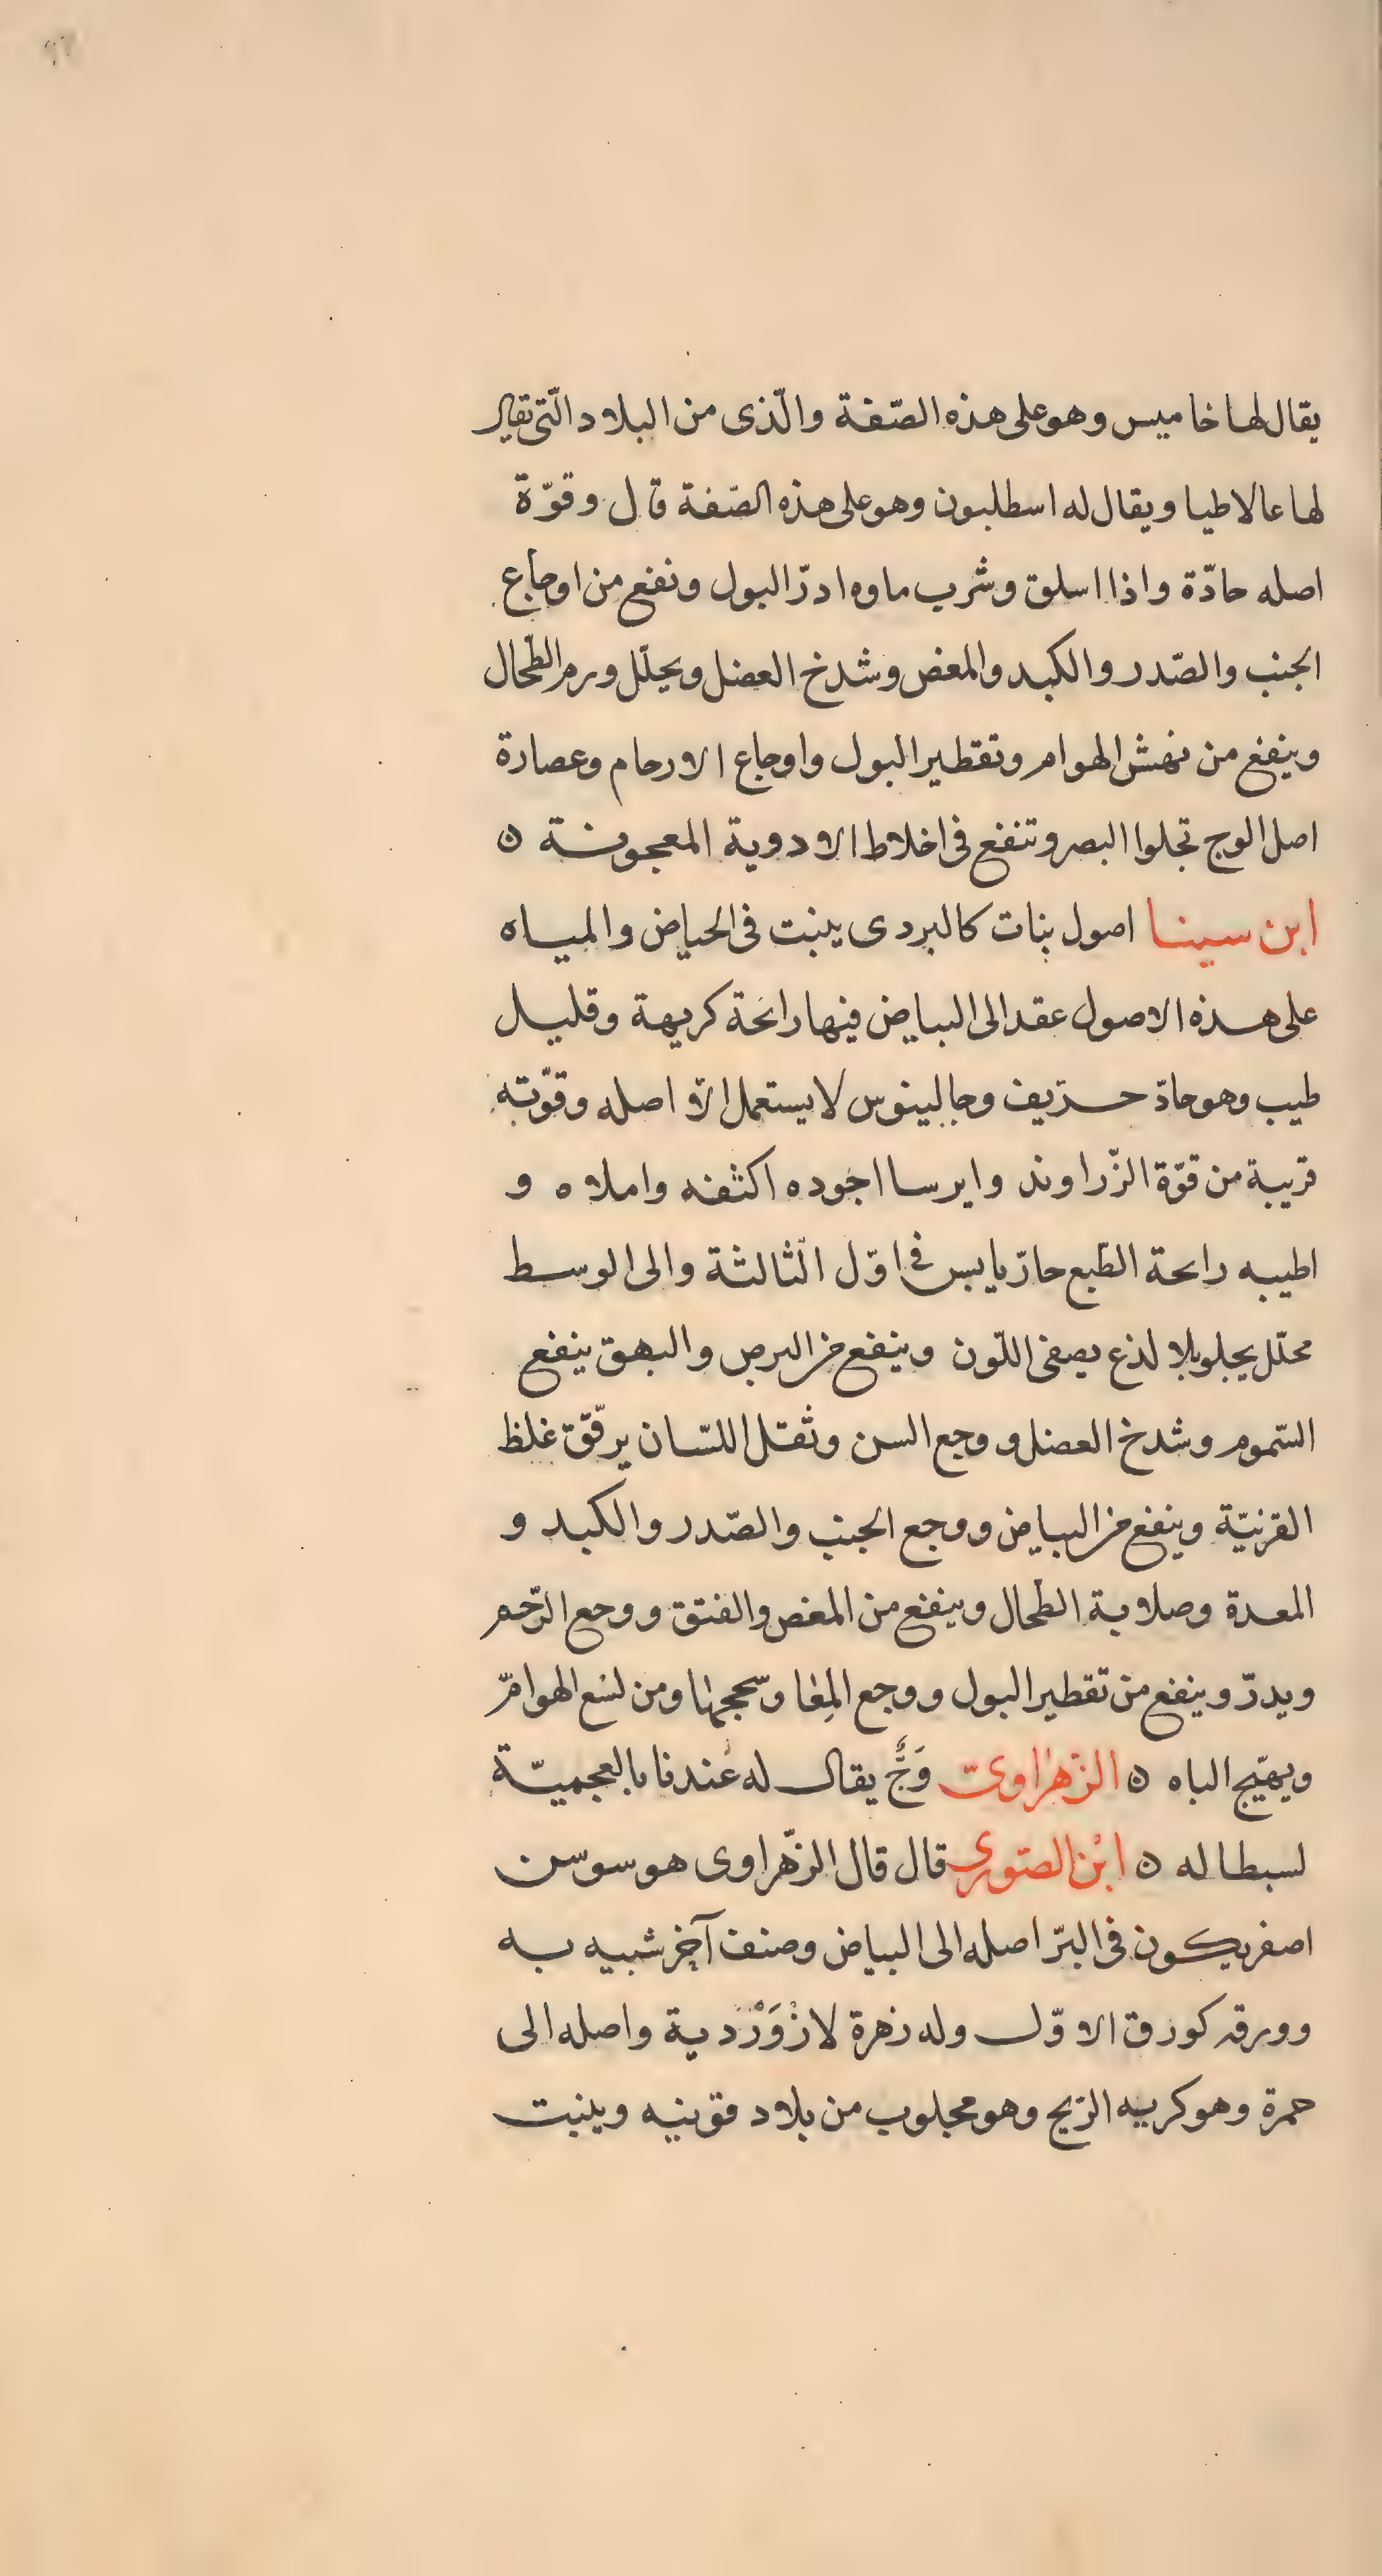 يقال لها خاميس وهو على هذه الصّفة والّذى من البلاد الّتى يقال
لها عالاطيا ويقال له اسطلبون وهو على هذه الصّفة قال وقوّة
اصله حادّة واذا اسلق وشرب ماوه ادرّ البول ونفع من اوجاع
الجنب والصّدر والكبد والمغص وشدخ العضل ويحلّل ورم الطّحال
وينفع من نهش الهوام وتقطير البول واوجاع الارحام وعصارة
اصل الوج تجلوا البصر وتنفع فى اخلاط الادوية المعجونة ه
ابن سينا اصول بنات كالبردى ينبت فى الحياض والمياه
على هذه الاصول عقد الى البياض فيها رائحة كريهة وقليل
طيب وهو حادّ حرّيف وجالينوس لا يستعمل الّا اصله وقوّته
قريبة من قوّة الزّراوند وايرسا اجوده اكثفه واملاه و
اطيبه رايحة الطّبع حارّ يابس فى اوّل الثّالثة والى الوسط
محلّل يجلو بلا لذع يصفى اللّون وينفع من البرص والبهق ينفع
السّموم وشدخ العضل و وجع السن وثقل اللسّان يرقّق غلظ
القرنيّة وينفع من البياض ووجع الجنب والصّدر والكبد و
المعدة وصلابة الطّحال وينفع من المغص والفتق ووجع الرّحم
ويدرّ وينفع من تقطير البول ووجع المِعا وسحجها ومن لسع الهوامّ
ويهيّج الباه ه الزّهراوىّ وَجٌّ يقال له عندنا بالعجميّة
لسبطاله ه ابْن الصّورى قال قال الزّهراوى هو سوسن
اصفر يكون فى البرّ اصله الى البياض وصنف آخر شبيه به
وورقه كورق الاوّل وله زهرة لازْوَرْدية واصله الى
حمرة وهو كريه الرّيح وهو مجلوب من بلاد قونيه وينبت